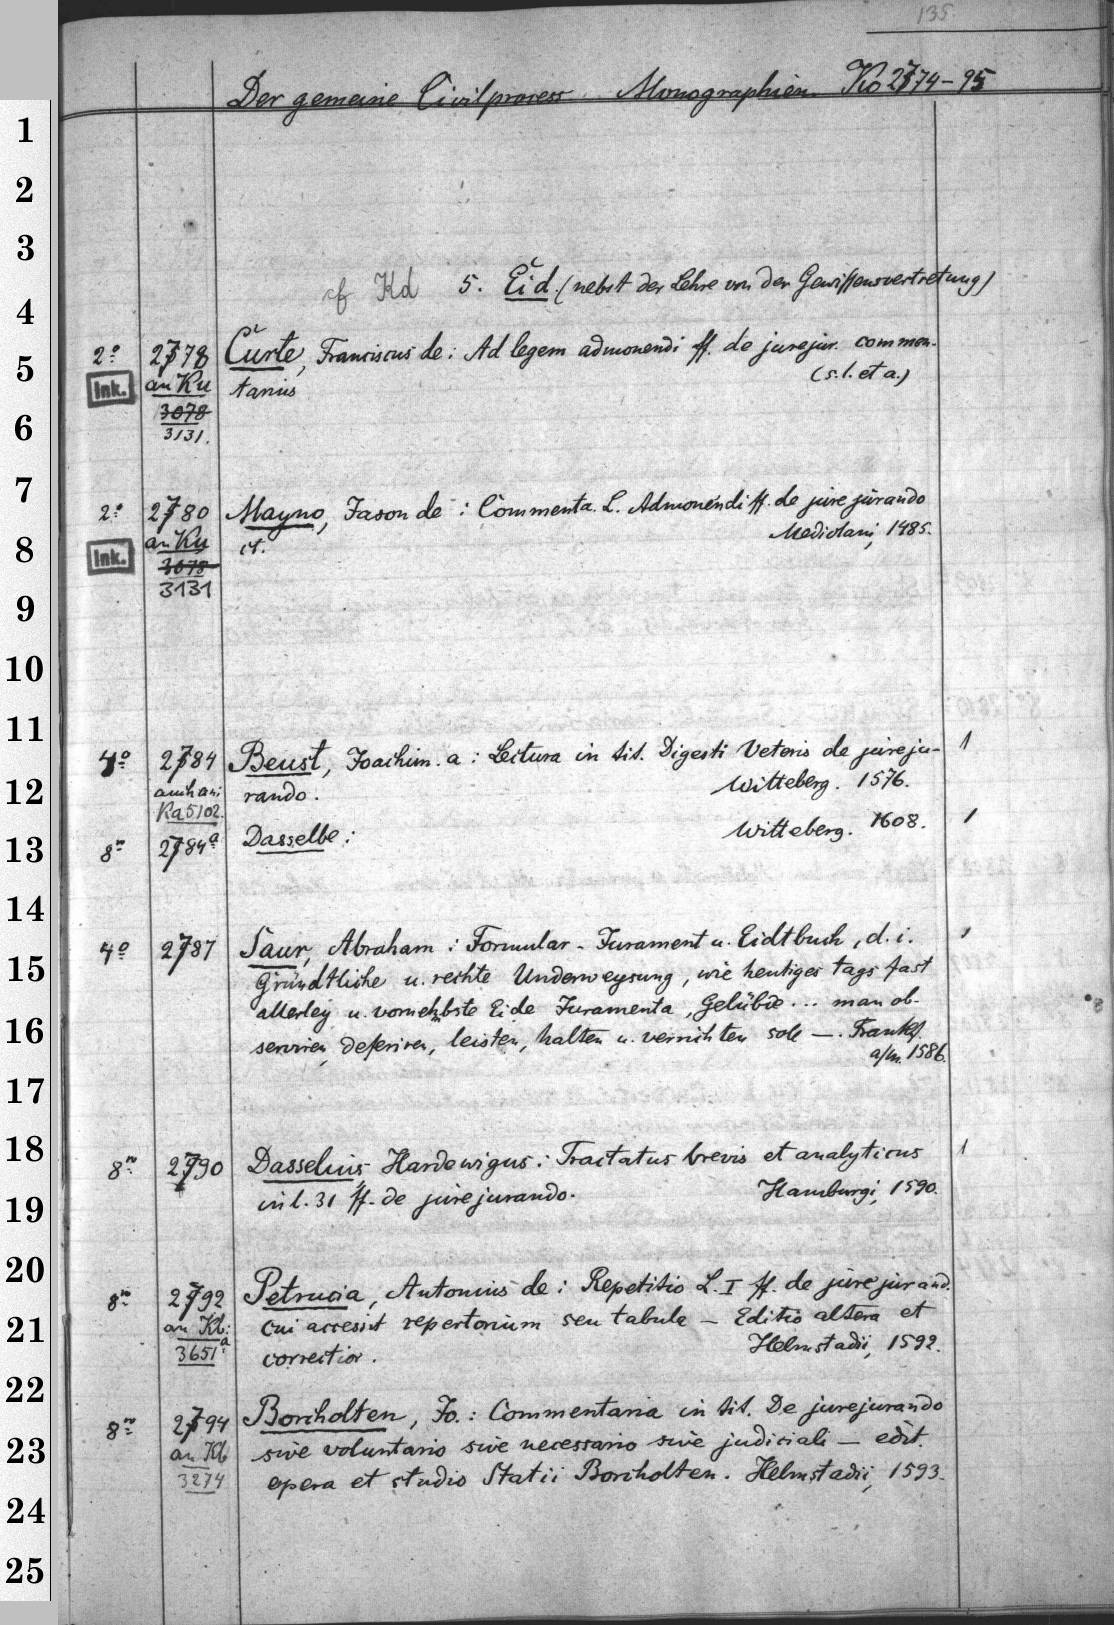 135.
Der gemeine Civilprocess Monographien Ko 2774-95
1
2
3
cf Kd 5. Eid. (nebst der Lehre von der Gewissensvertretung)
4
2° 2778 Curte, Franciscus de: Ad legem admonendi ff. de jurejur. commen-
5
Ink. an Ku tarius (s.l. et a.)
3078
6
3131.
7
2° 2780 Mayno, Jason de: Commenta. L. Admonendi ff. de jure jurando
8
Ink. an Ku it. Mediolani, 1485.
3078
3131
9
10
11
4° 2784 Beust, Joachim. a: Lectura in tit. Digesti Veteris de jureju- 1
12
rando. Witteberg. 1576.
Ka 5102.
13
8° 2784a Dasselbe: Witteberg. 1608. 1
14
4° 2787 Saur, Abraham: Formular- Jurament u. Eidtbuch, d. i. 1
15
Gründtliche u. rechte Underweysung, wie heutiges tags fast
allerley u. vornehbste Eide Juramenta, Gelübde ... man ob-
16
serviren, deferiren, leisten, halten u. vernichten sole —. Frankf.
a/M. 1586.
17
18
8° 2790 Dasselius, Hardewigus: Tractatus brevis et analyticus 1
19
in l. 31 ff. de jurejurando. Hamburgi, 1590.
20
8° 2792 Petrucia, Antonius de: Repetitio L. I ff. de jure jurand.
21
an Kb: cui accessit repertorium seu tabula — Editio altera et
3651a correctior. Helmstadii, 1592.
22
8° 2794 Borcholten, Jo.: Commentaria in tit. De jurejurando
23
an Kb sive voluntario sive necessario sive judiciali — edit.
3274 opera et studio Statii Borcholten. Helmstadii, 1593.
24
25